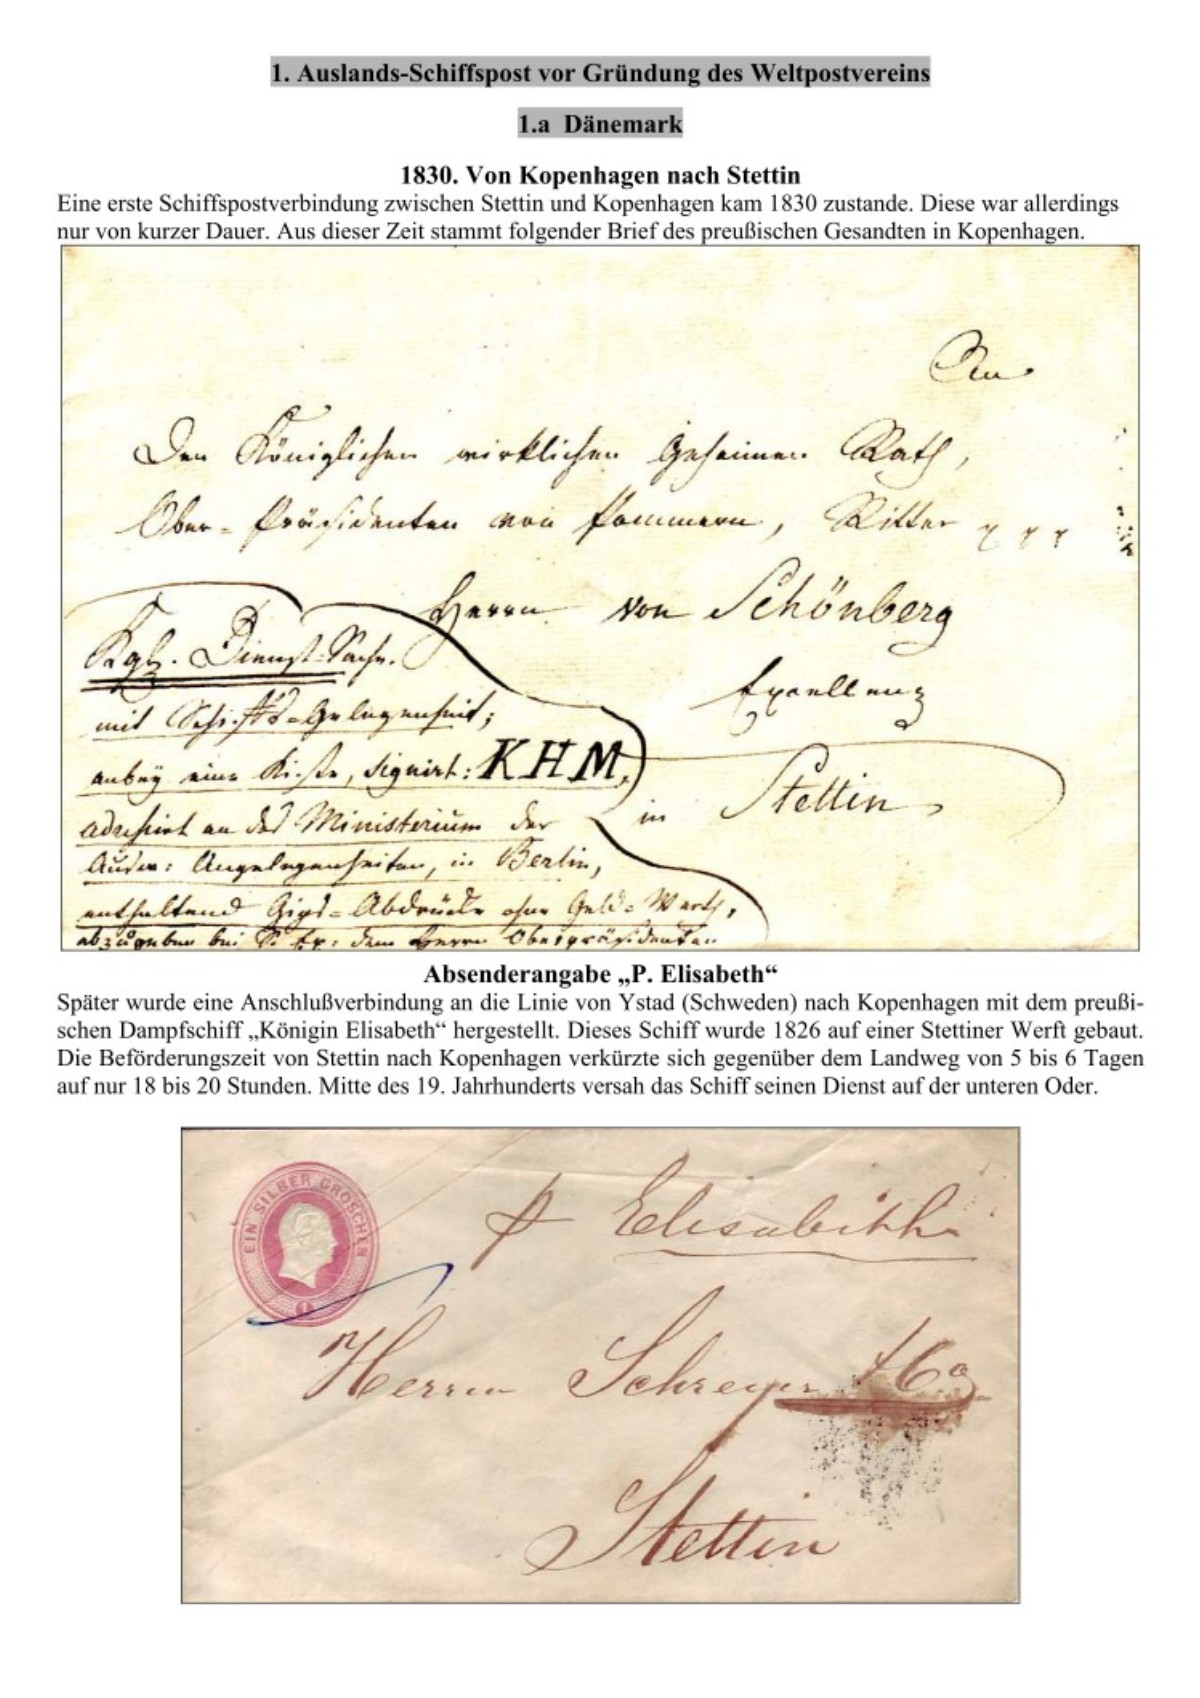 1. Auslands-Schiffspost vor Gründung des Weltpostvereins
1.a Dänemark
1830. Von Kopenhagen nach Stettin
Eine erste Schiffspostverbindung zwischen Stettin und Kopenhagen kam 1830 zustande. Diese war allerdings
nur von kurzer Dauer. Aus dieser Zeit stammt folgender Brief des preußischen Gesandten in Kopenhagen.
An
Den Königlichen wirklichen Geheimen Rath,
Ober-Präsidenten von Pommern, Ritter
Herrn von Schönberg
Excellenz
in Stettin
Kgl. Dienst-Sache.
mit Schiffs-Gelegenheit;
anbey eine Kiste, signirt: KHM,
adressirt an das Ministerium der
Ausw: Angelegenheiten, in Berlin,
enthaltend Gips-Abdrücke ohne Geld-Werth,
abzugeben bei S. Ex: dem Herrn Oberpräsidenten
Absenderangabe „P. Elisabeth“
Später wurde eine Anschlußverbindung an die Linie von Ystad (Schweden) nach Kopenhagen mit dem preußi-
schen Dampfschiff „Königin Elisabeth“ hergestellt. Dieses Schiff wurde 1826 auf einer Stettiner Werft gebaut.
Die Beförderungszeit von Stettin nach Kopenhagen verkürzte sich gegenüber dem Landweg von 5 bis 6 Tagen
auf nur 18 bis 20 Stunden. Mitte des 19. Jahrhunderts versah das Schiff seinen Dienst auf der unteren Oder.
EIN SILBER GROSCHEN
1
p Elisabeth
Herrn Schreyer &Co
Stettin